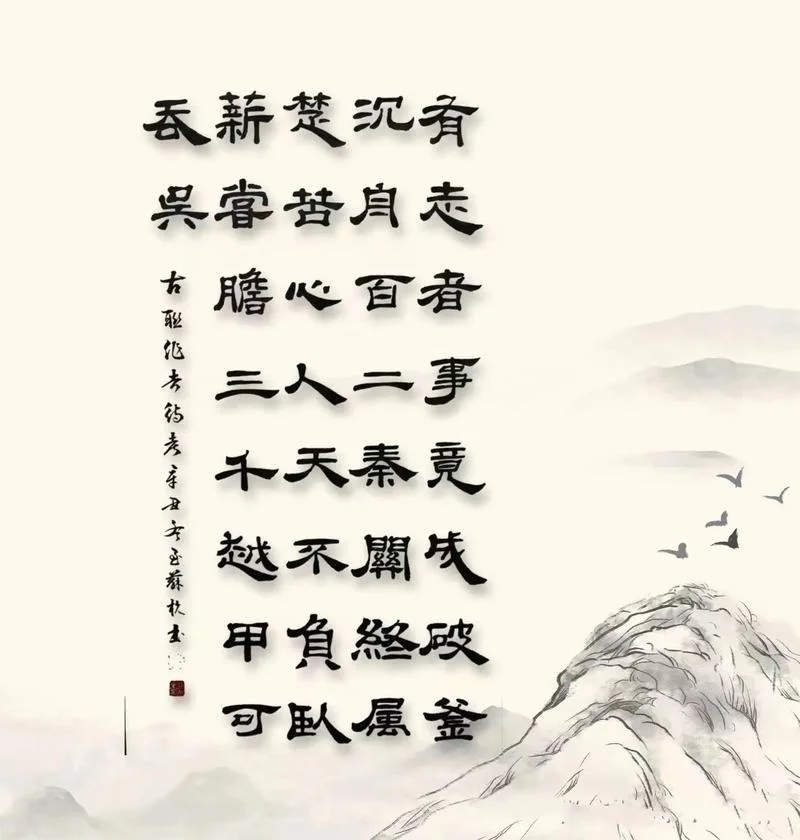 有志者事竟成破釜
沉舟百二秦關終属
楚苦心人天不負臥
薪嘗膽三千越甲可
吞吳
古聯作者待考辛丑冬至蘇書